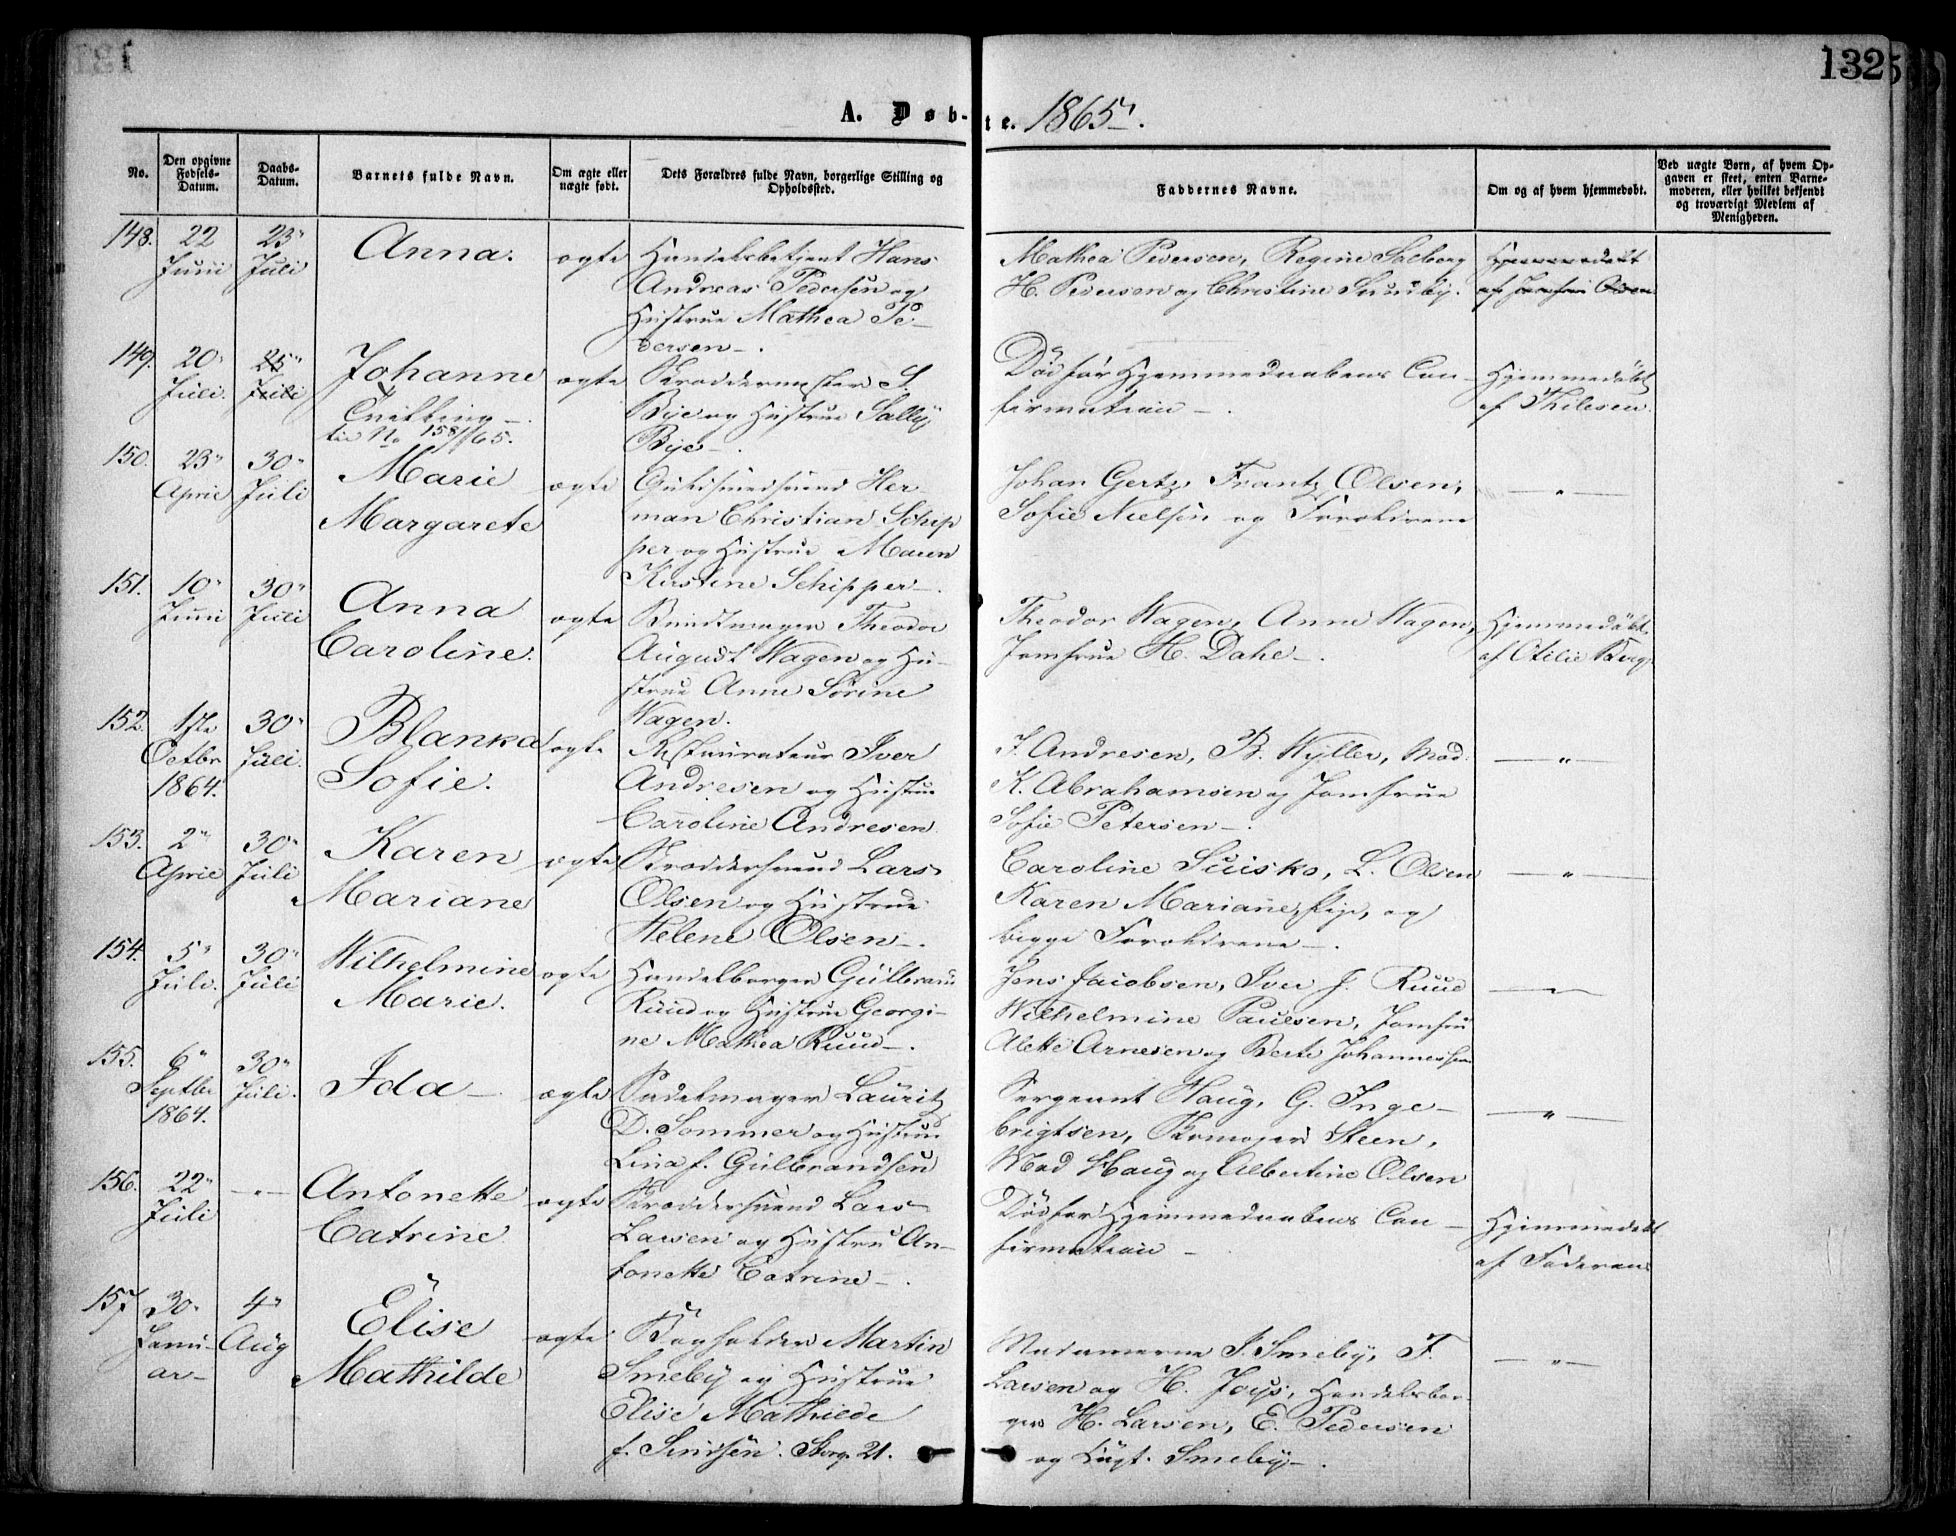 132
A. Døb-te. 1865.
No.
Den opgivne Fødsels-Datum.
Daabs-Datum.
Barnets fulde Navn.
Om ægte eller uægte født.
Dets Forældres fulde Navn, borgerlige Stilling og Opholdssted.
Faddernes Navne.
Om og af hvem hjemmedøbt.
Ved uægte Børn, af hvem Opgaven er skeet, enten Barnemoderen, eller hvilket bekjendt og troværdigt Medlem af Menigheden.
148. 22 Juni 23 Juli Anna. ægte
Handelsbetjent Hans
Andreas Pedersen og
Hustrue Mathea Pe-
dersen.
Mathea Pedersen, Regine Solberg
H. Pedersen og Christine Sundby.
Hjemmedøbt
af Jomfru Olsen
149. 20 Juli. 25 Juli Johanne ægte
Tvilling
til No 158/65.
Snedkermester S.
Bye og Hustrue Sally
Bye.
Død før Hjemmedaabens Con-
firmation.
Hjemmedøbt
af Thilesen.
150. 23 April 30 Juli Marie ægte
Margarete
Guldsmedsvend Her-
man Christian Schip
per og Hustrue Maren
Kirstine Schipper.
Johan Gertz, Frantz Olsen,
Sofie Nielsen og Forældrene
— " —
151. 10 Juni 30 Juli Anna ægte
Caroline.
Bundtmager Theodor
August Wagen og Hu-
strue Anne Sørine
Wagen.
Theodor Wagen, Anne Wagen,
Jomfrue H. Dahl.
Hjemmedøbt
af Otilie Berg
152. 1ste Octbr 1864. 30 Juli. Blanka ægte
Sofie.
Restaurateur Iver
Andresen og Hustrue
Caroline Andresen
I. Andresen, B. Wyller, Mad.
K. Abrahamsen og Jomfrue
Sofie Petersen.
— " —
153. 2 April 30 Juli Karen ægte
Mariane
Snedkersvend Lars
Olsen og Hustrue
Helene Olsen.
Caroline L. Olsen
Karen Mariane, og
begge Forældrene.
— " —
154. 5 Juli. 30 Juli Wilhelmine ægte
Marie.
Handelborger Gulbrand
Ruud og Hustrue Georgi-
ne Mathea Ruud.
Jens Jacobsen, Iver J. Ruud
Wilhelmine Paulsen, Jomfru
Alette Arnesen og Berte Johannessen
155. 6 Septbr 1864. 30 Juli. Ida ægte
Sadelmager Lauritz
D. Sommer og Hustrue
Lina f. Gulbrandsen
Sergeant Haug, G. Inge-
brigtsen, Steen,
Mad Haug og Albertine Olsen
— " —
156. 22 Juli — " — Antonette ægte
Catrine
Snedkersvend Lars
Larsen og Hustru An-
tonette Catrine.
Død før Hjemmedaabens Con-
firmation
Hjemmedøbt
af Faderen
157. 30 Janu- ar 4 Aug Elise ægte
Mathilde
Bogholder Martin
Smeby og Hustrue
Elise Mathilde
f. Sinssen. Storg. 21.
Madamerne I. Smeby, F.
Larsen og H. Handelsbor-
ger H. Larsen, E. Pedersen
og Smeby.
— " —